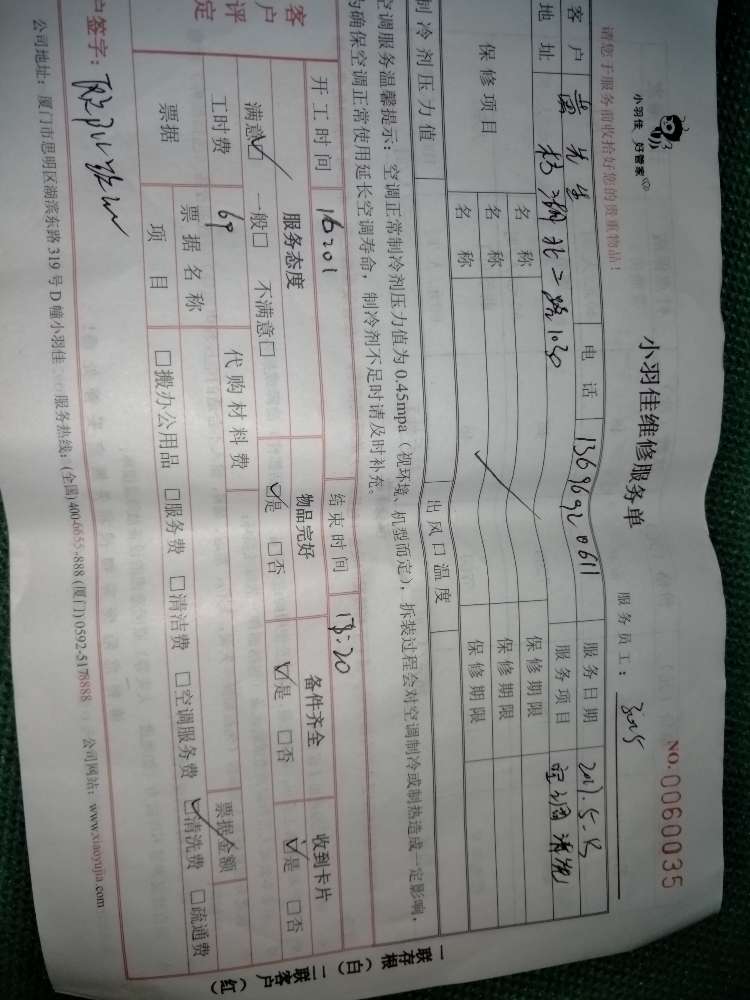 小羽佳 好管家
小羽佳维修服务单
NO:0060035
请您于服务前收拾好您的贵重物品!
服务员工:
客户 黄先生 电话 13696920611 服务日期 2017.5.
地址 湖北二路1030 服务项目 空调清洗
保修项目 名称 保修期限
名称 保修期限
名称 保修期限
制冷剂压力值 出风口温度
空调服务温馨提示:空调正常制冷剂压力值为0.45mpa(视环境、机型而定),拆装过程会对空调制冷或制热造成一定影响,
为确保空调正常使用延长空调寿命,制冷剂不足时请及时补充。
开工时间 结束时间 18:20
客户评定 服务态度 物品完好 备件齐全 收到卡片
满意□ 一般□ 不满意□ □是 □否 □是 □否 □是 □否
工时费 69 代购材料费 票据金额
票据 票据名称
项目 □搬办公用品 □服务费 □清洁费 □空调服务费 □清洗费 □疏通费
户签字:
公司地址:厦门市思明区湖滨东路319号D幢小羽佳 服务热线:(全国)4006655-888 (厦门)0592-5178888 公司网站:www.xiaoyujia.com
一联存根(白) 二联客户(红)